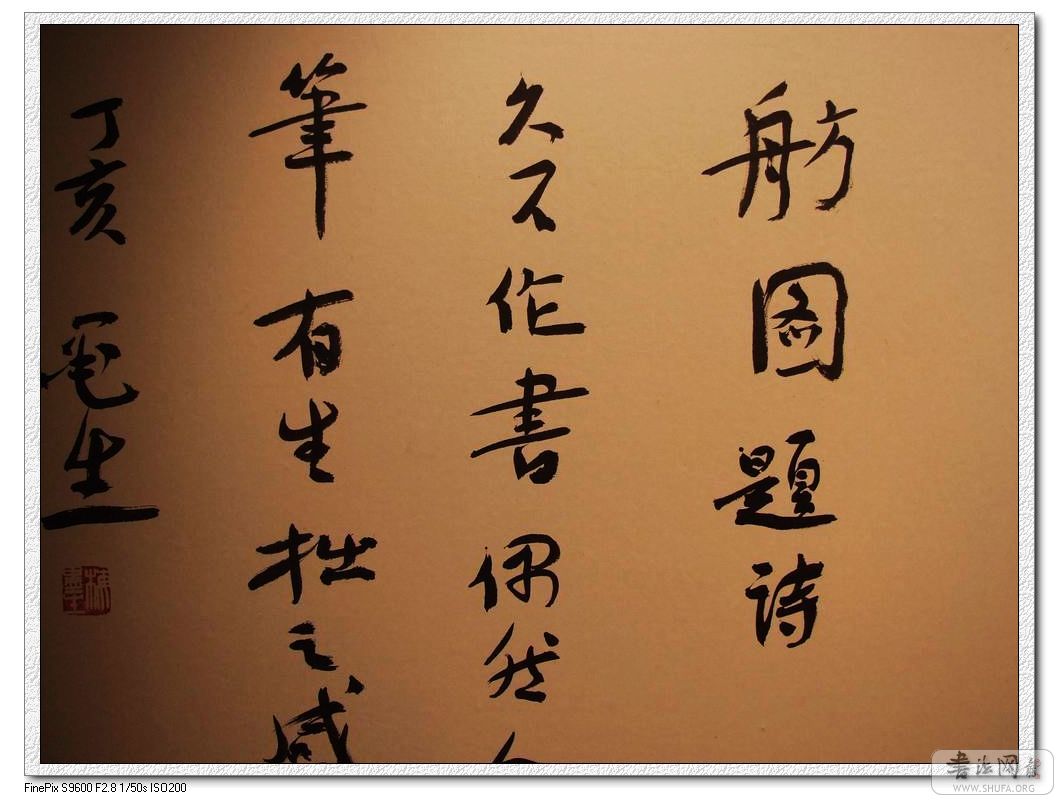 舫图題诗
久不作書偶然
筆有生拙之感
丁亥 生
FinePix S9600 F2.8 1/50s ISO200
书法网
WWW.SHUFA.ORG